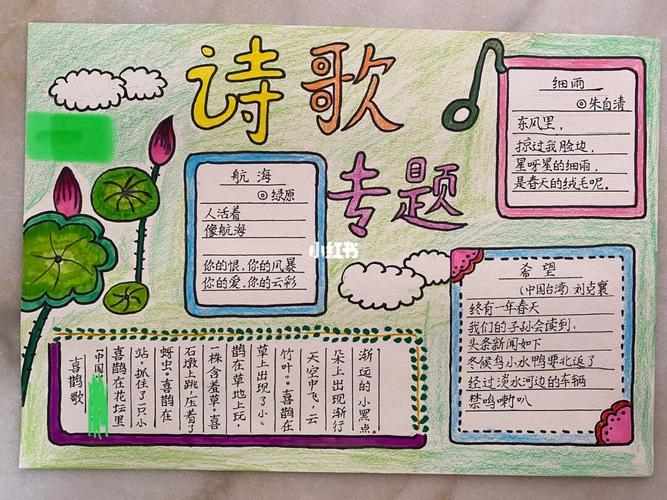 诗歌
专题
航海
◎绿原
人活着
像航海
你的恨,你的风暴
你的爱,你的云彩
细雨
◎朱自清
东风里,
掠过我脸边,
星呀星的细雨,
是春天的绒毛呢。
小红书
希望
(中国台湾) 刘克襄
终有一年春天
我们的子孙会读到,
头条新闻如下
冬候鸟小水鸭要北返了
经过淡水河边的车辆
禁鸣喇叭
喜鹊歌
中国
喜鹊在花坛里
站.抓住了一只小
蚜虫。喜鹊在
石墩上跳.压着了
一株含羞草。喜
鹊在草地上玩,
草上出现了小、
竹叶。喜鹊在
天空中飞,云
朵上出现渐行
渐远的小黑点。